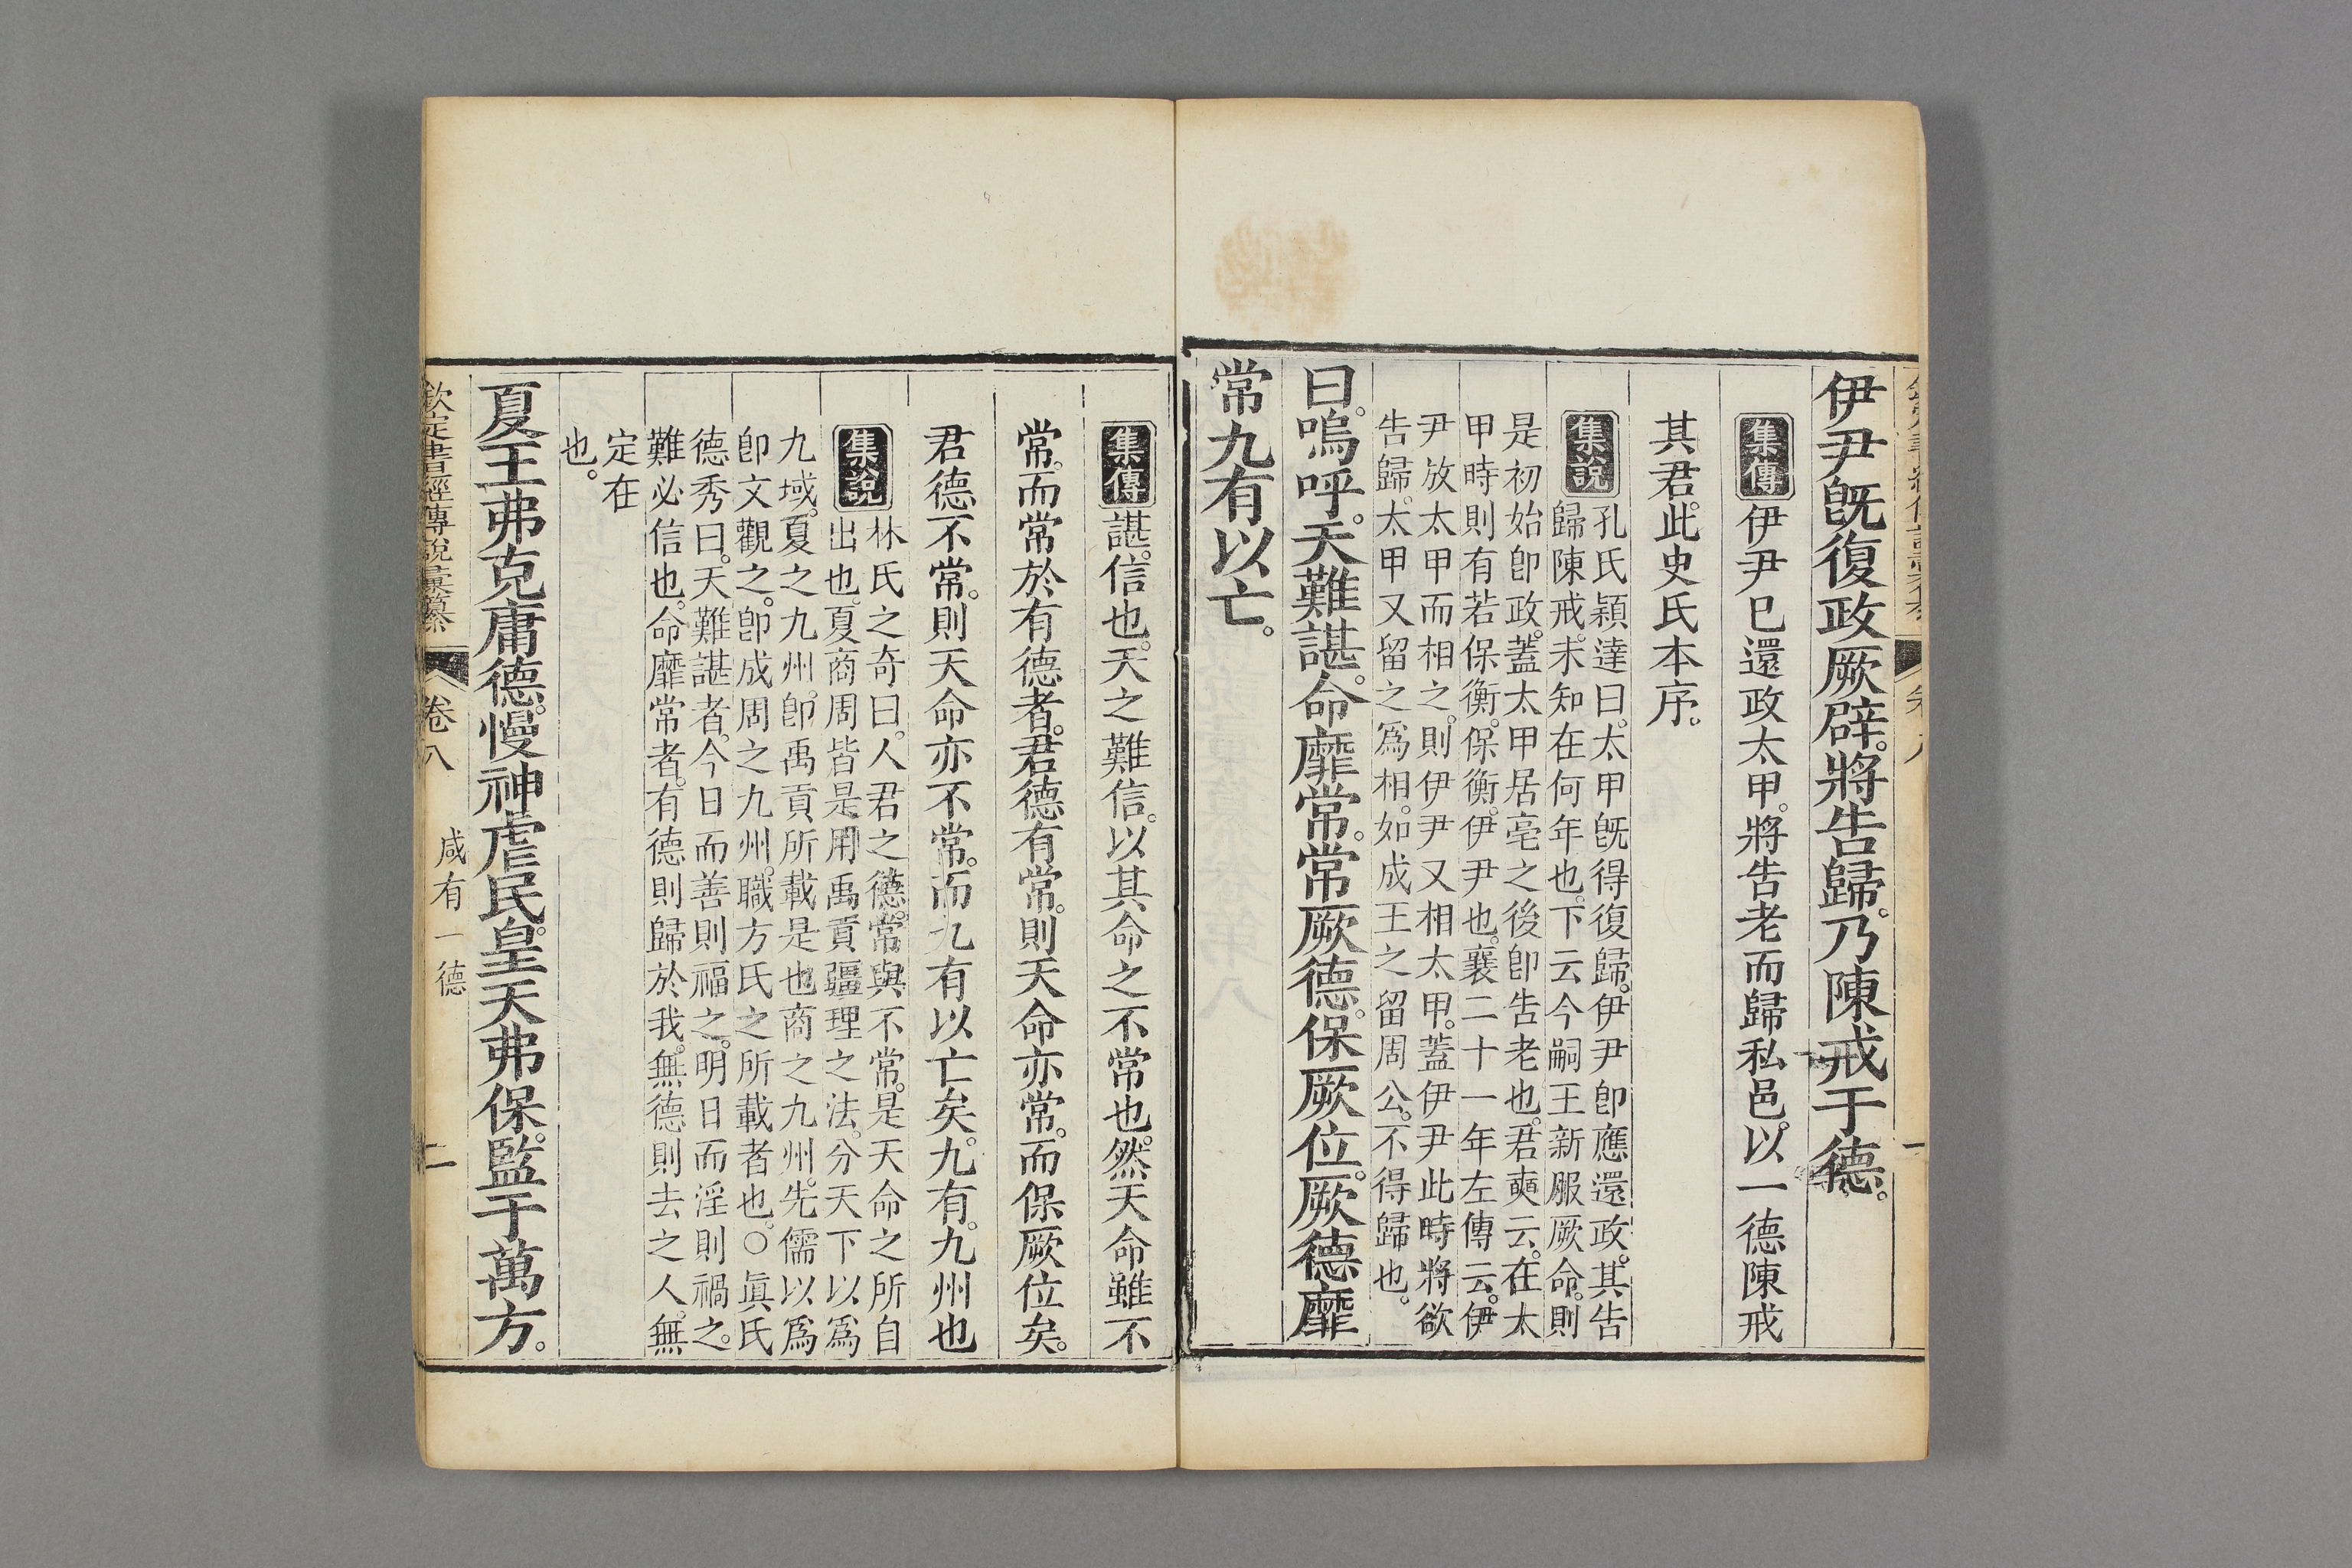 伊尹旣復政厥辟。將告歸。乃陳戒于德。
集傳 伊尹已還政太甲。將告老而歸私邑。以一德陳戒
其君。此史氏本序。
集說 孔氏穎達曰。太甲旣得復歸。伊尹卽應還政。其告
歸陳戒。未知在何年也。下云今嗣王新服厥命。則
是初始卽政。蓋太甲居亳之後卽告老也。君奭云。在太
甲時則有若保衡。保衡。伊尹也。襄二十一年左傳云。伊
尹放太甲而相之。則伊尹又相太甲。蓋伊尹此時將欲
告歸。太甲又留之爲相。如成王之留周公。不得歸也。
曰。嗚呼。天難諶。命靡常。常厥德。保厥位。厥德靡
常。九有以亡。
集傳 諶。信也。天之難信。以其命之不常也。然天命雖不
常。而常於有德者。君德有常。則天命亦常。而保厥位矣。
君德不常。則天命亦不常。而九有以亡矣。九有。九州也
集說 林氏之奇曰。人君之德。常與不常。是天命之所自
出也。夏商周皆是用禹貢疆理之法。分天下以爲
九域。夏之九州。卽禹貢所載是也商之九州。先儒以爲
卽文觀之。卽成周之九州。職方氏之所載者也。○眞氏
德秀曰。天難諶者。今日而善則福之。明日而淫則禍之。
難必信也。命靡常者。有德則歸於我。無德則去之人。無
定在
也。
夏王弗克庸德。慢神虐民。皇天弗保。監于萬方。
欽定書經傳說彙纂 卷八 咸有一德 二